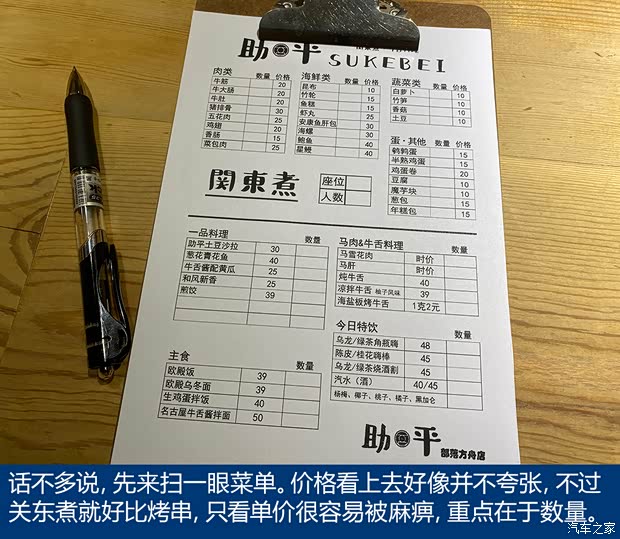 助平
SUKEBEI
肉类 数量 价格
牛筋 20
牛大肠 20
牛肚 20
猪排骨 30
五花肉 25
鸡翅 20
香肠 15
菜包肉 25
海鲜类 数量 价格
昆布 10
竹轮 15
鱼糕 15
虾丸 25
安康鱼肝包 30
海螺 30
鲍鱼 40
星鳗 40
蔬菜类 数量 价格
白萝卜 10
竹笋 10
香菇 10
土豆 10
蛋·其他 数量 价格
鹌鹑蛋 15
半熟鸡蛋 15
鸡蛋卷 20
豆腐 10
魔芋块 10
葱包 15
年糕包 15
関東煮
座位
人数
一品料理 数量
助平土豆沙拉 30
葱花青花鱼 40
牛舌酱配黄瓜 25
和风新香 25
煎饺 39
主食 数量
欧殿饭 39
欧殿乌冬面 39
生鸡蛋拌饭 40
名古屋牛舌酱拌面 50
马肉&牛舌料理 数量
马雪花肉 时价
马肝 时价
炖牛舌 40
凉拌牛舌 柚子风味 39
海盐板烤牛舌 1克2元
今日特饮 数量
乌龙/绿茶角瓶嗨 48
陈皮/桂花嗨棒 45
乌龙/绿茶烧酒割 45
汽水（酒） 40/45
杨梅、椰子、桃子、橘子、黑加仑
助平 部落方舟店
话不多说, 先来扫一眼菜单。价格看上去好像并不夸张, 不过
关东煮就好比烤串, 只看单价很容易被麻痹, 重点在于数量。
汽车之家